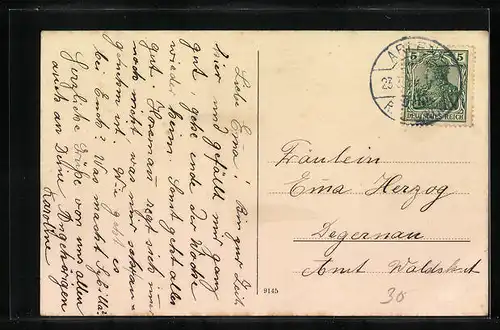 Liebe Ema! Bin zur Zeit
hier und gefällt mir ganz
gut, gehe ende der Woche
wieder heim. Sonst geht alles
gut. regt sich immer
noch nicht, was mir sehr an-
genehm ist. Wie geht es
bei Euch? Was macht
Herzliche Grüße von uns allen
auch an Deine Angehörigen
Karoline
5 5
DEUTSCHES REICH
23.3
Fräulein
Ema Herzog
Degernau
Amt Waldshut
9145
30